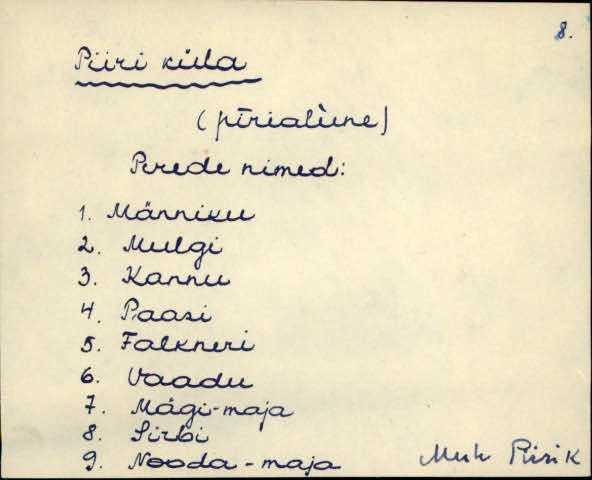 8.
Piiri küla
(pīrialùne)
Perede nimed:
1. Männiku
2. Mulgi
3. Kannu
4. Paasi
5. Falkneri
6. Vaadu
7. Mägi-maja
8. Sirbi
9. Nooda-maja
Muh